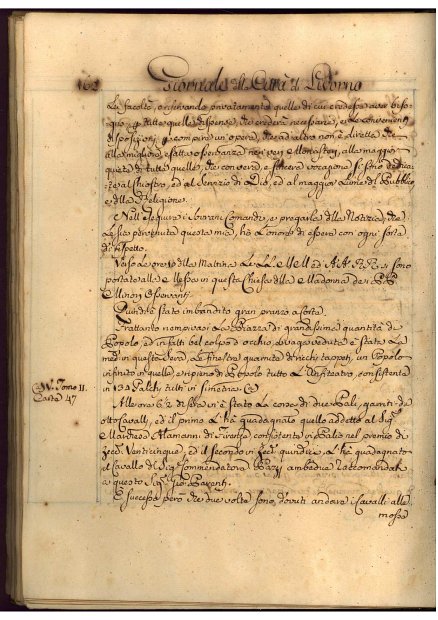 162 Giornale della Città di Livorno
Le facoltà, osservando privatamente quelle di cui credesse aver biso-
gno, per tutte quelle dispense, che crederà necessarie, e le convenienti
disposizioni per compire un'opera, che ad altro non è diretta, che
alla migliore, esatta osservanza nei veri Monasteri, alla maggior
quiete di tutte quelle, che con vera, e sincera vocazione si sono dedica-
te al Chiostro, ed al Servizio di Dio, ed al maggior bene del Pubblico,
e della Religione.
Nell'eseguire i Sovrani Comandi, e pregarla della Notizia, che
Le sia pervenuta questa mia, ho L'onore di essere con ogni sorta
di rispetto.
Verso le ore 10 della Mattina Le LL. MM. ed AA. RR. si sono
portate alla Messa in questa Chiesa della Madonna de PP.
Minori Osservanti.
Quindi è stato imbandito gran pranzo a Corte.
Frattanto riempivasi La Piazza di grandissima quantità di
Popolo, ed in fatti bel colpo d'occhio, e vaga veduta è stata La
med. in questa sera, Le finestre guarnite di ricchi tappeti, un Popolo
infinito in quelle, e ripieno di Popolo tutto L'Anfiteatro, consistente
V. Tomo II. in 132 Palchi tutti in simetria
Carta 47
Alle ore 6 1/2 di sera vi è stata La corsa di due Palj, ganti da
otto Cavalli, ed il primo L'ha guadagnato quello addetto al Sig.
Marchese Alamanni di Firenze, consistente il Palio nel premio di
Zecc. Venticinque, ed il secondo in Zecc. quindici L'ha guadagnato
il Cavallo del Sig. Commendatore Pazzi ambedue raccomandati
a questo Sig. Gio. Parenti.
È successo però che due volte sono, dovuti andare i Cavalli alle
mosse